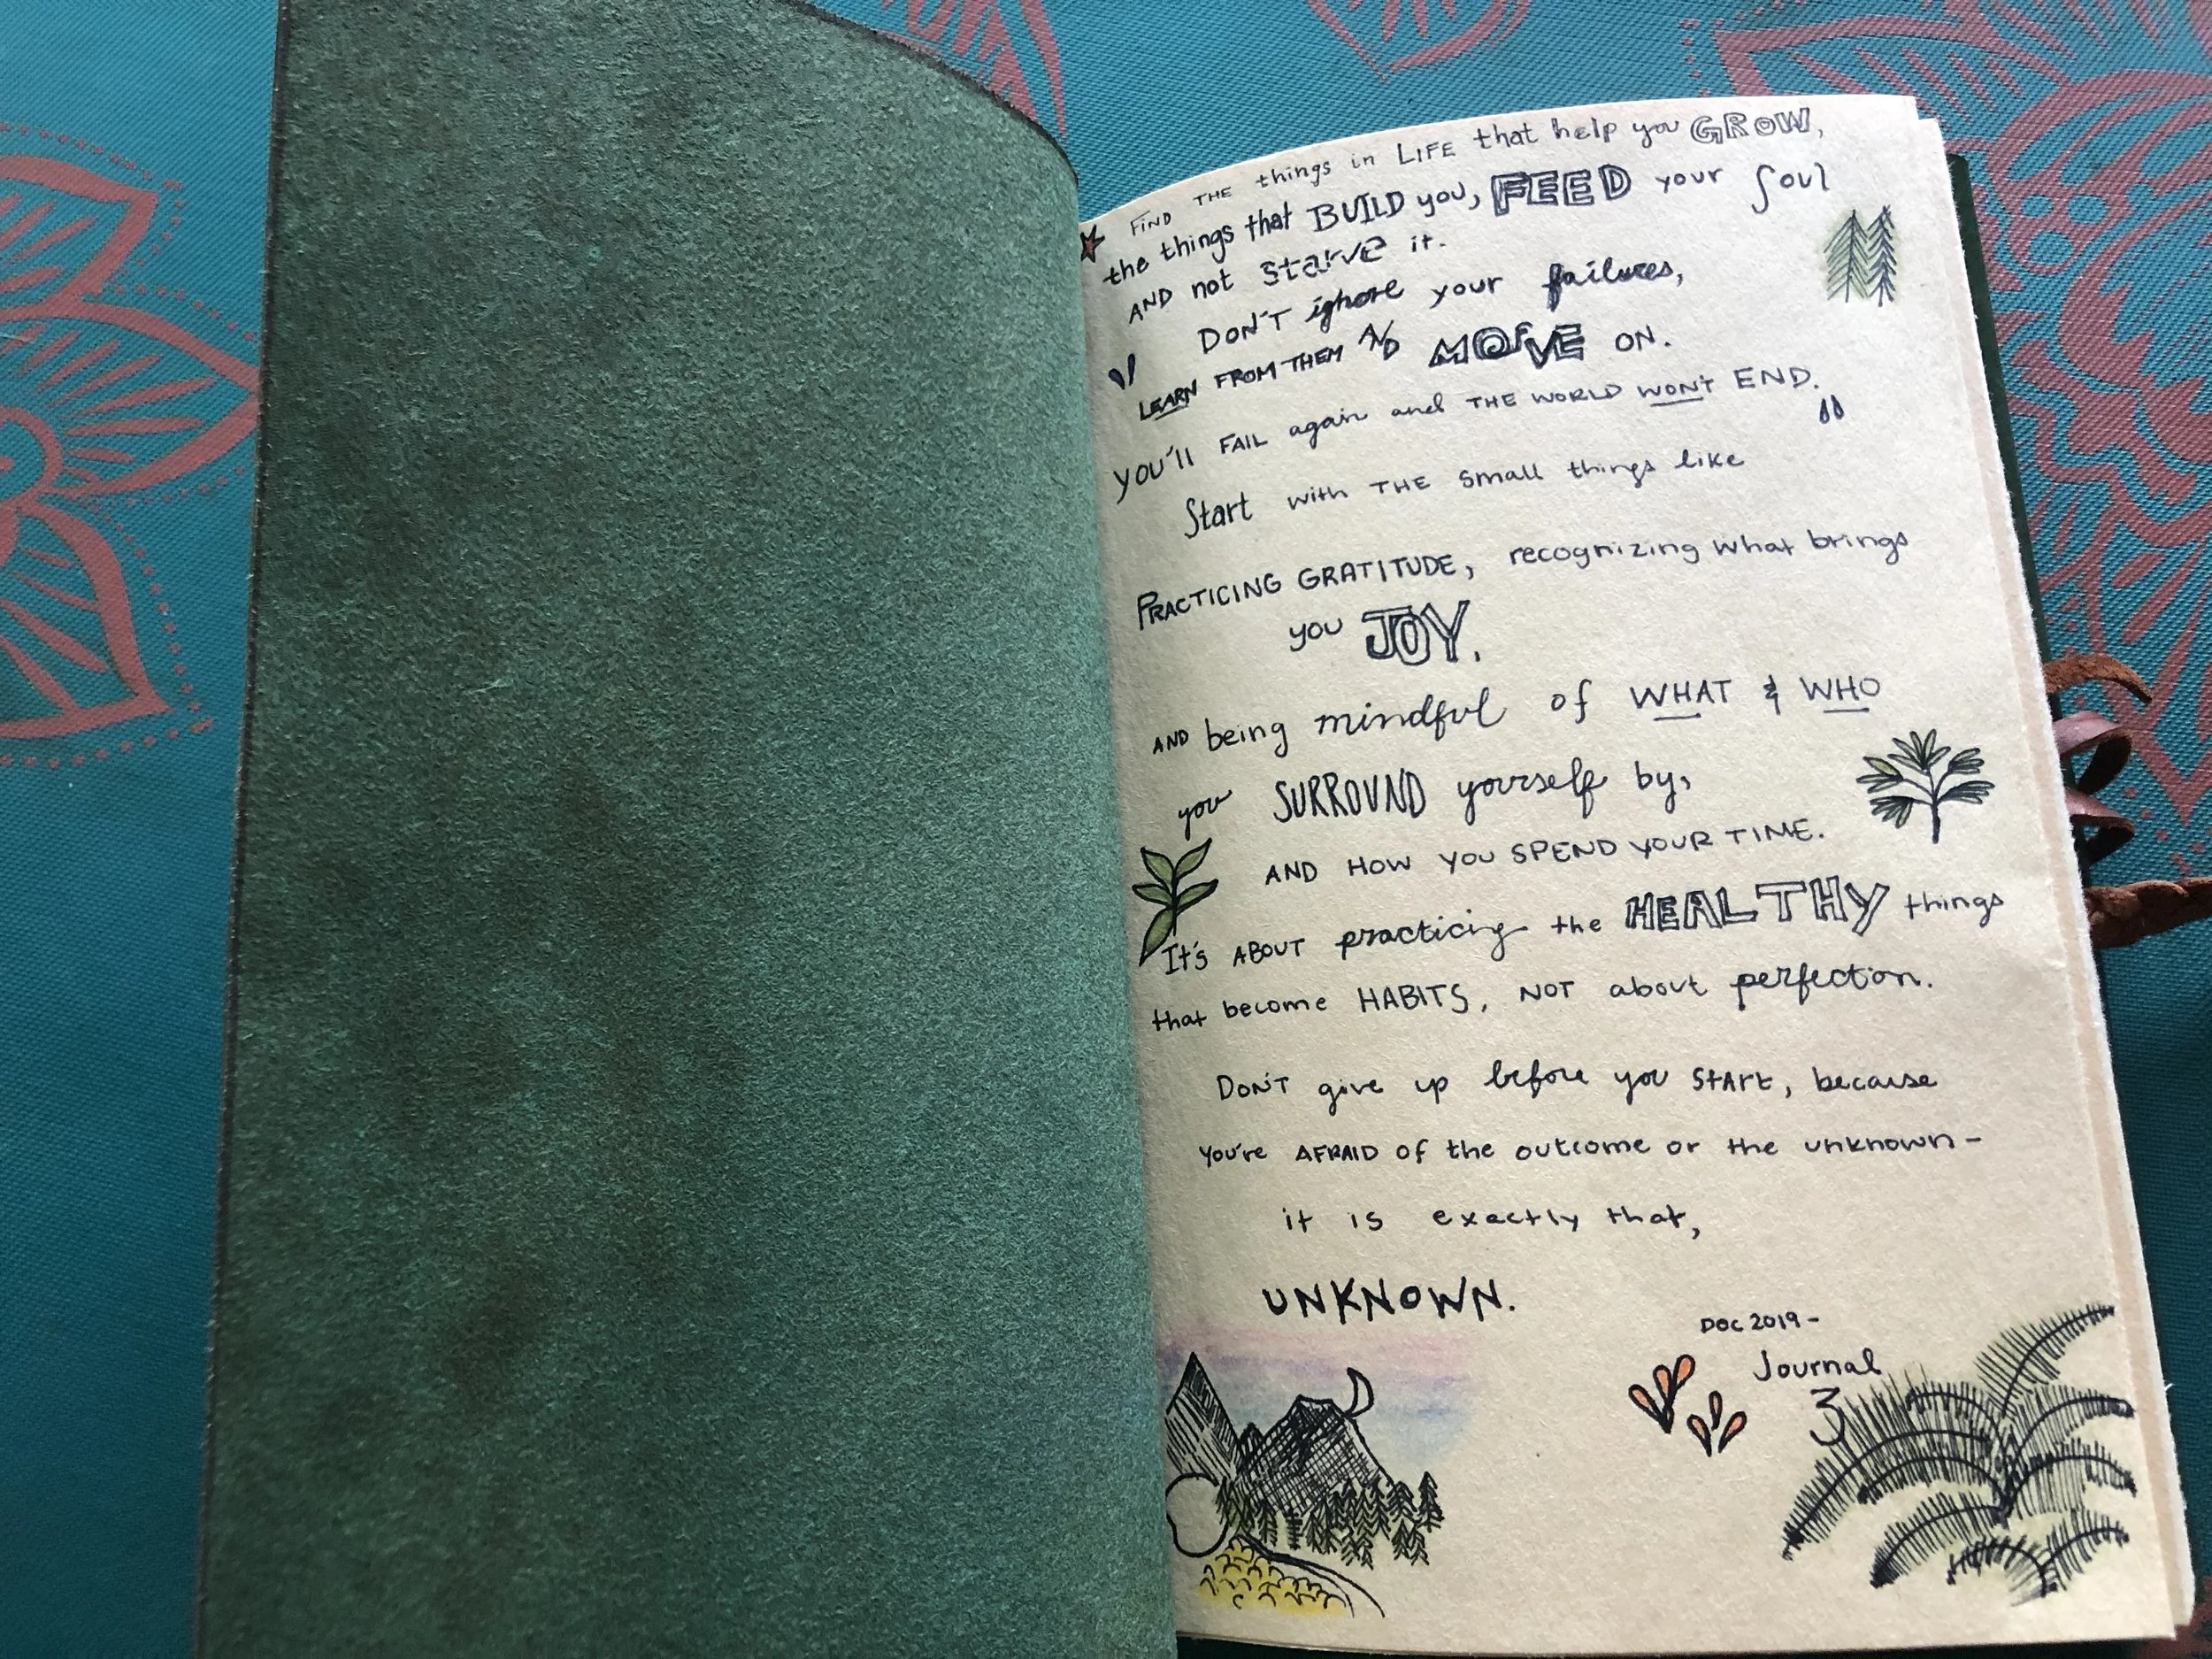 FIND THE things in LIFE that help you GROW,
the things that BUILD you, FEED your Soul
AND not starve it.
DON'T ignore your failures,
LEARN FROM THEM AND MOVE ON.
YOU'll FAIL again and THE WORLD WON'T END.
Start with THE small things like
PRACTICING GRATITUDE, recognizing what brings
you JOY.
AND being mindful of WHAT & WHO
you SURROUND yourself by,
AND HOW YOU SPEND YOUR TIME.
It's ABOUT practicing the HEALTHY things
that become HABITS, NOT about perfection.
DON'T give up before you START, because
you're AFRAID of the outcome or the unknown-
it is exactly that,
UNKNOWN.
DOC 2019-
Journal
3